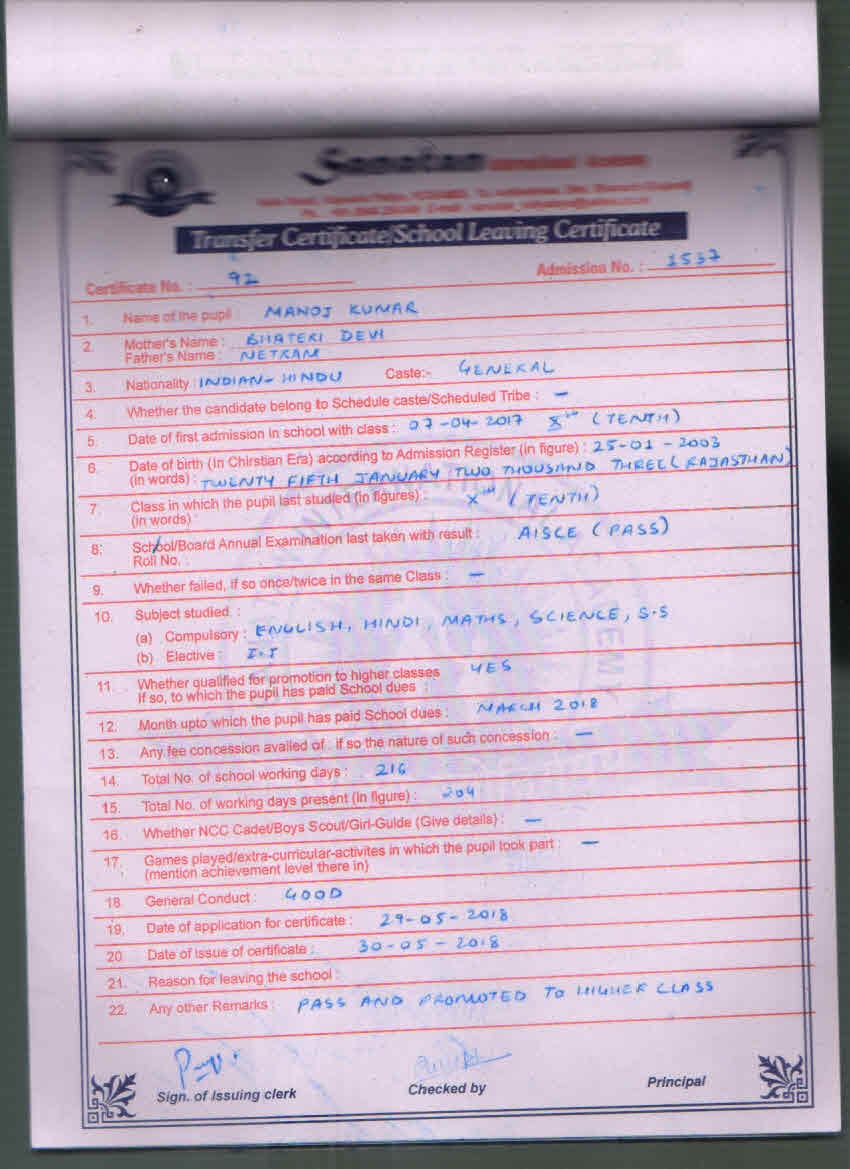 Sanatan
Transfer Certificate/School Leaving Certificate
Certificate No. : 92 Admission No. : 1537
1. Name of the pupil : MANOJ KUMAR
2. Mother's Name : BHATERI DEVI
Father's Name : NETRAM
3. Nationality : INDIAN - HINDU Caste:- GENERAL
4. Whether the candidate belong to Schedule caste/Scheduled Tribe : —
5. Date of first admission in school with class : 07-04-2017 Xth (TENTH)
6. Date of birth (In Chirstian Era) according to Admission Register (in figure) : 25-01-2003
(in words) : TWENTY FIFTH JANUARY TWO THOUSAND THREE (RAJASTHAN)
7. Class in which the pupil last studied (in figures) : Xth (TENTH)
(in words)
8. School/Board Annual Examination last taken with result : AISCE (PASS)
Roll No. :
9. Whether failed, if so once/twice in the same Class : —
10. Subject studied. :
(a) Compulsory : ENGLISH, HINDI, MATHS, SCIENCE, S.S
(b) Elective : I.T
11. Whether qualified for promotion to higher classes YES
If so, to which the pupil has paid School dues :
12. Month upto which the pupil has paid School dues : MARCH 2018
13. Any fee concession availed of : if so the nature of such concession : —
14. Total No. of school working days : 216
15. Total No. of working days present (in figure) : 204
16. Whether NCC Cadet/Boys Scout/Girl-Guide (Give details) : —
17. Games played/extra-curricular-activites in which the pupil took part : —
(mention achievement level there in)
18. General Conduct : GOOD
19. Date of application for certificate : 29-05-2018
20. Date of issue of certificate : 30-05-2018
21. Reason for leaving the school :
22. Any other Remarks : PASS AND PROMOTED TO HIGHER CLASS
Sign. of Issuing clerk Checked by Principal